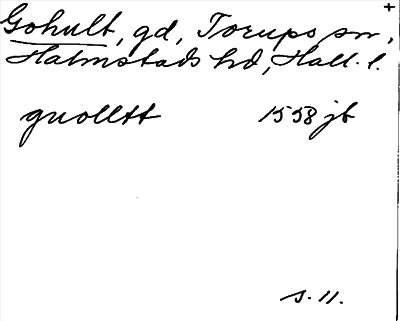 Gohult, gd, Torups sn, +
Halmstads hd, Hall. l.
guolltt 1558 jb
s. 11.